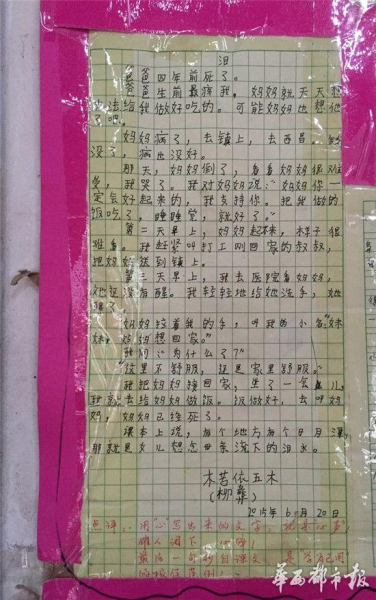 泪
爸爸四年前死了。
爸爸生前最疼我，妈妈就天天想
办法给我做好吃的。可能妈妈也想他
了吧。
妈妈病了，去镇上，去西昌。钱
没了，病也没好。
那天，妈妈倒了，看着妈妈很难
受，我哭了。我对妈妈说：“妈妈你一
定会好起来的，我支持你。把我做的
饭吃了，睡睡觉，就好了。”
第二天早上，妈妈起不来，样子很
难看。我赶紧叫打工刚回家的叔叔，
把妈妈送到镇上。
第三天早上，我去医院看妈妈，
她还没有醒。我轻轻地给她洗手，她
醒了。
妈妈拉着我的手，叫我的小名“妹
妹，妈妈想回家。”
我问：“为什么了？”
“这里不舒服，还是家里舒服。”
我把妈妈接回家，坐了一会儿，
我就去给妈妈做饭。饭做好，去叫妈
妈，妈妈已经死了。
课本上说，有个地方有个日月潭，
那就是女儿想念母亲流下的泪水。
木苦依五木
（柳彝）
2015年6月20日
点评：用心写出来的文章，
催人泪下
最后一句
华西都市报